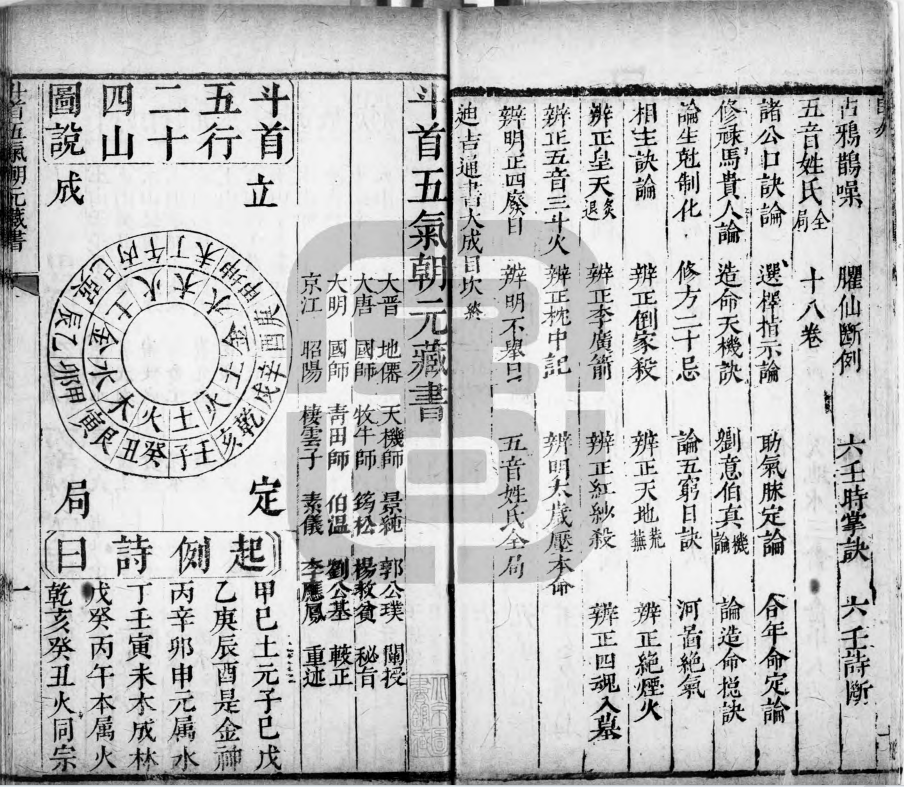 占鴉鵲噪　臞仙斷例　六壬時掌訣　六壬詩斷
五音姓氏全局　十八卷
諸公口訣論　選擇指示論　助氣脉定論　合年命定論
修祿馬貴人論　造命天機訣　劉意伯真機論　論造命捴訣
論生尅制化　修方二十忌　論五窮日訣　河啚絕氣
相主訣論　辨正倒家殺　辨正天地荒蕪　辨正絕煙火
辨正皇天炙退　辨正李廣箭　辨正紅紗殺　辨正四魂入墓
辨正五音三斗火　辨正枕中記　辨明太歲壓本命
辨明正四廢日　辨明不舉日　五音姓氏全局
迪吉通書大成目次終
斗首五氣朝元藏書
大晉　地僊　天機師　景純　郭公璞　闡授
大唐　國師　牧牛師　筠松　楊救貧　秘旨
大明　國師　青田師　伯溫　劉公基　較正
京江　昭陽　棲雲子　素儀　李應鳳　重述
斗首五行二十四山圖說
立成定局
壬子癸丑艮寅甲卯乙辰巽巳丙午丁未坤申庚酉辛戌乾亥
起例詩曰
甲巳土元子巳戌
乙庚辰酉是金神
丙辛卯申元属水
丁壬寅未木成林
戊癸丙午本属火
乾亥癸丑火同宗
斗首五氣朝元藏書
一